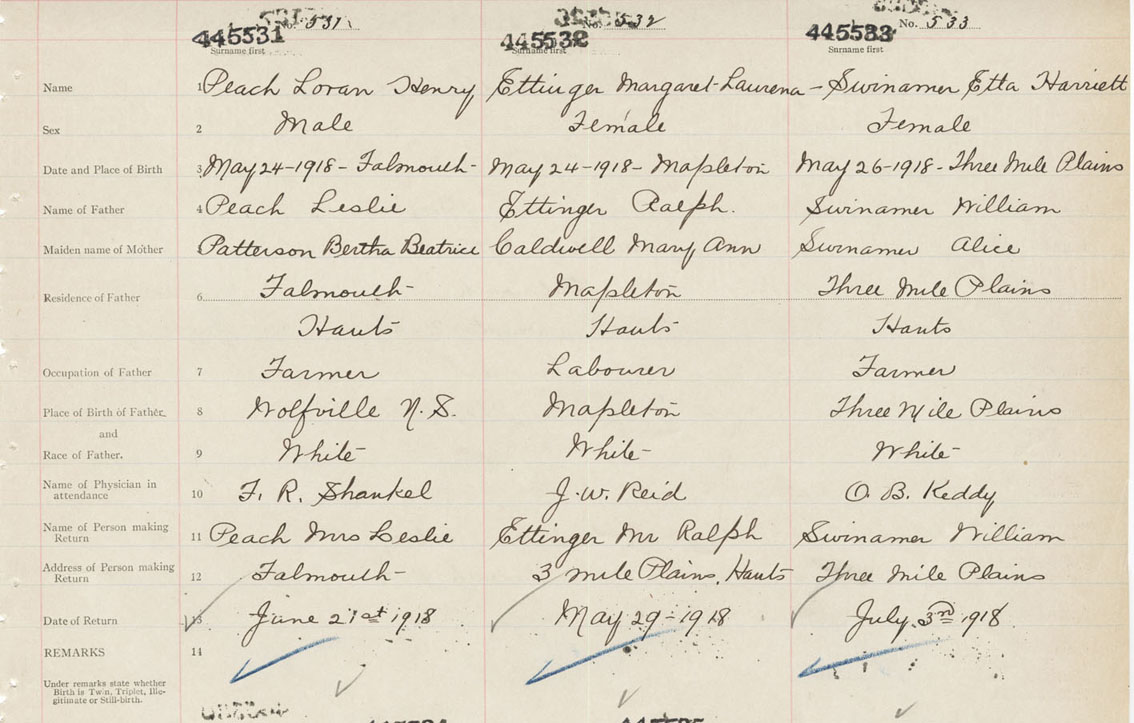 No. 531 No. 532 No. 533
445531 445532 445533
Surname first Surname first Surname first
Name 1 Peach Loran Henry Ettinger Margaret-Laurena - Swinamer Etta Harriett
Sex 2 Male Female Female
Date and Place of Birth 3 May 24-1918- Falmouth- May 24-1918- Mapleton May 26-1918- Three Mile Plains
Name of Father 4 Peach Leslie Ettinger Ralph. Swinamer William
Maiden name of Mother Patterson Bertha Beatrice Caldwell Mary Ann Swinamer Alice
Residence of Father 6 Falmouth- Mapleton Three Mile Plains
Hants Hants Hants
Occupation of Father 7 Farmer Labourer Farmer
Place of Birth of Father. 8 Wolfville N.S. Mapleton Three Mile Plains
and
Race of Father. 9 White- White- White-
Name of Physician in attendance 10 F. R. Shankel J. W. Reid O. B. Keddy
Name of Person making Return 11 Peach Mrs Leslie Ettinger Mr Ralph Swinamer William
Address of Person making Return 12 Falmouth- 3 mile Plains, Hants Three Mile Plains
Date of Return 13 June 21st 1918 May 29-1918 July 3rd 1918
REMARKS 14
Under remarks state whether
Birth is Twin, Triplet, Ille-
gitimate or Still-birth.